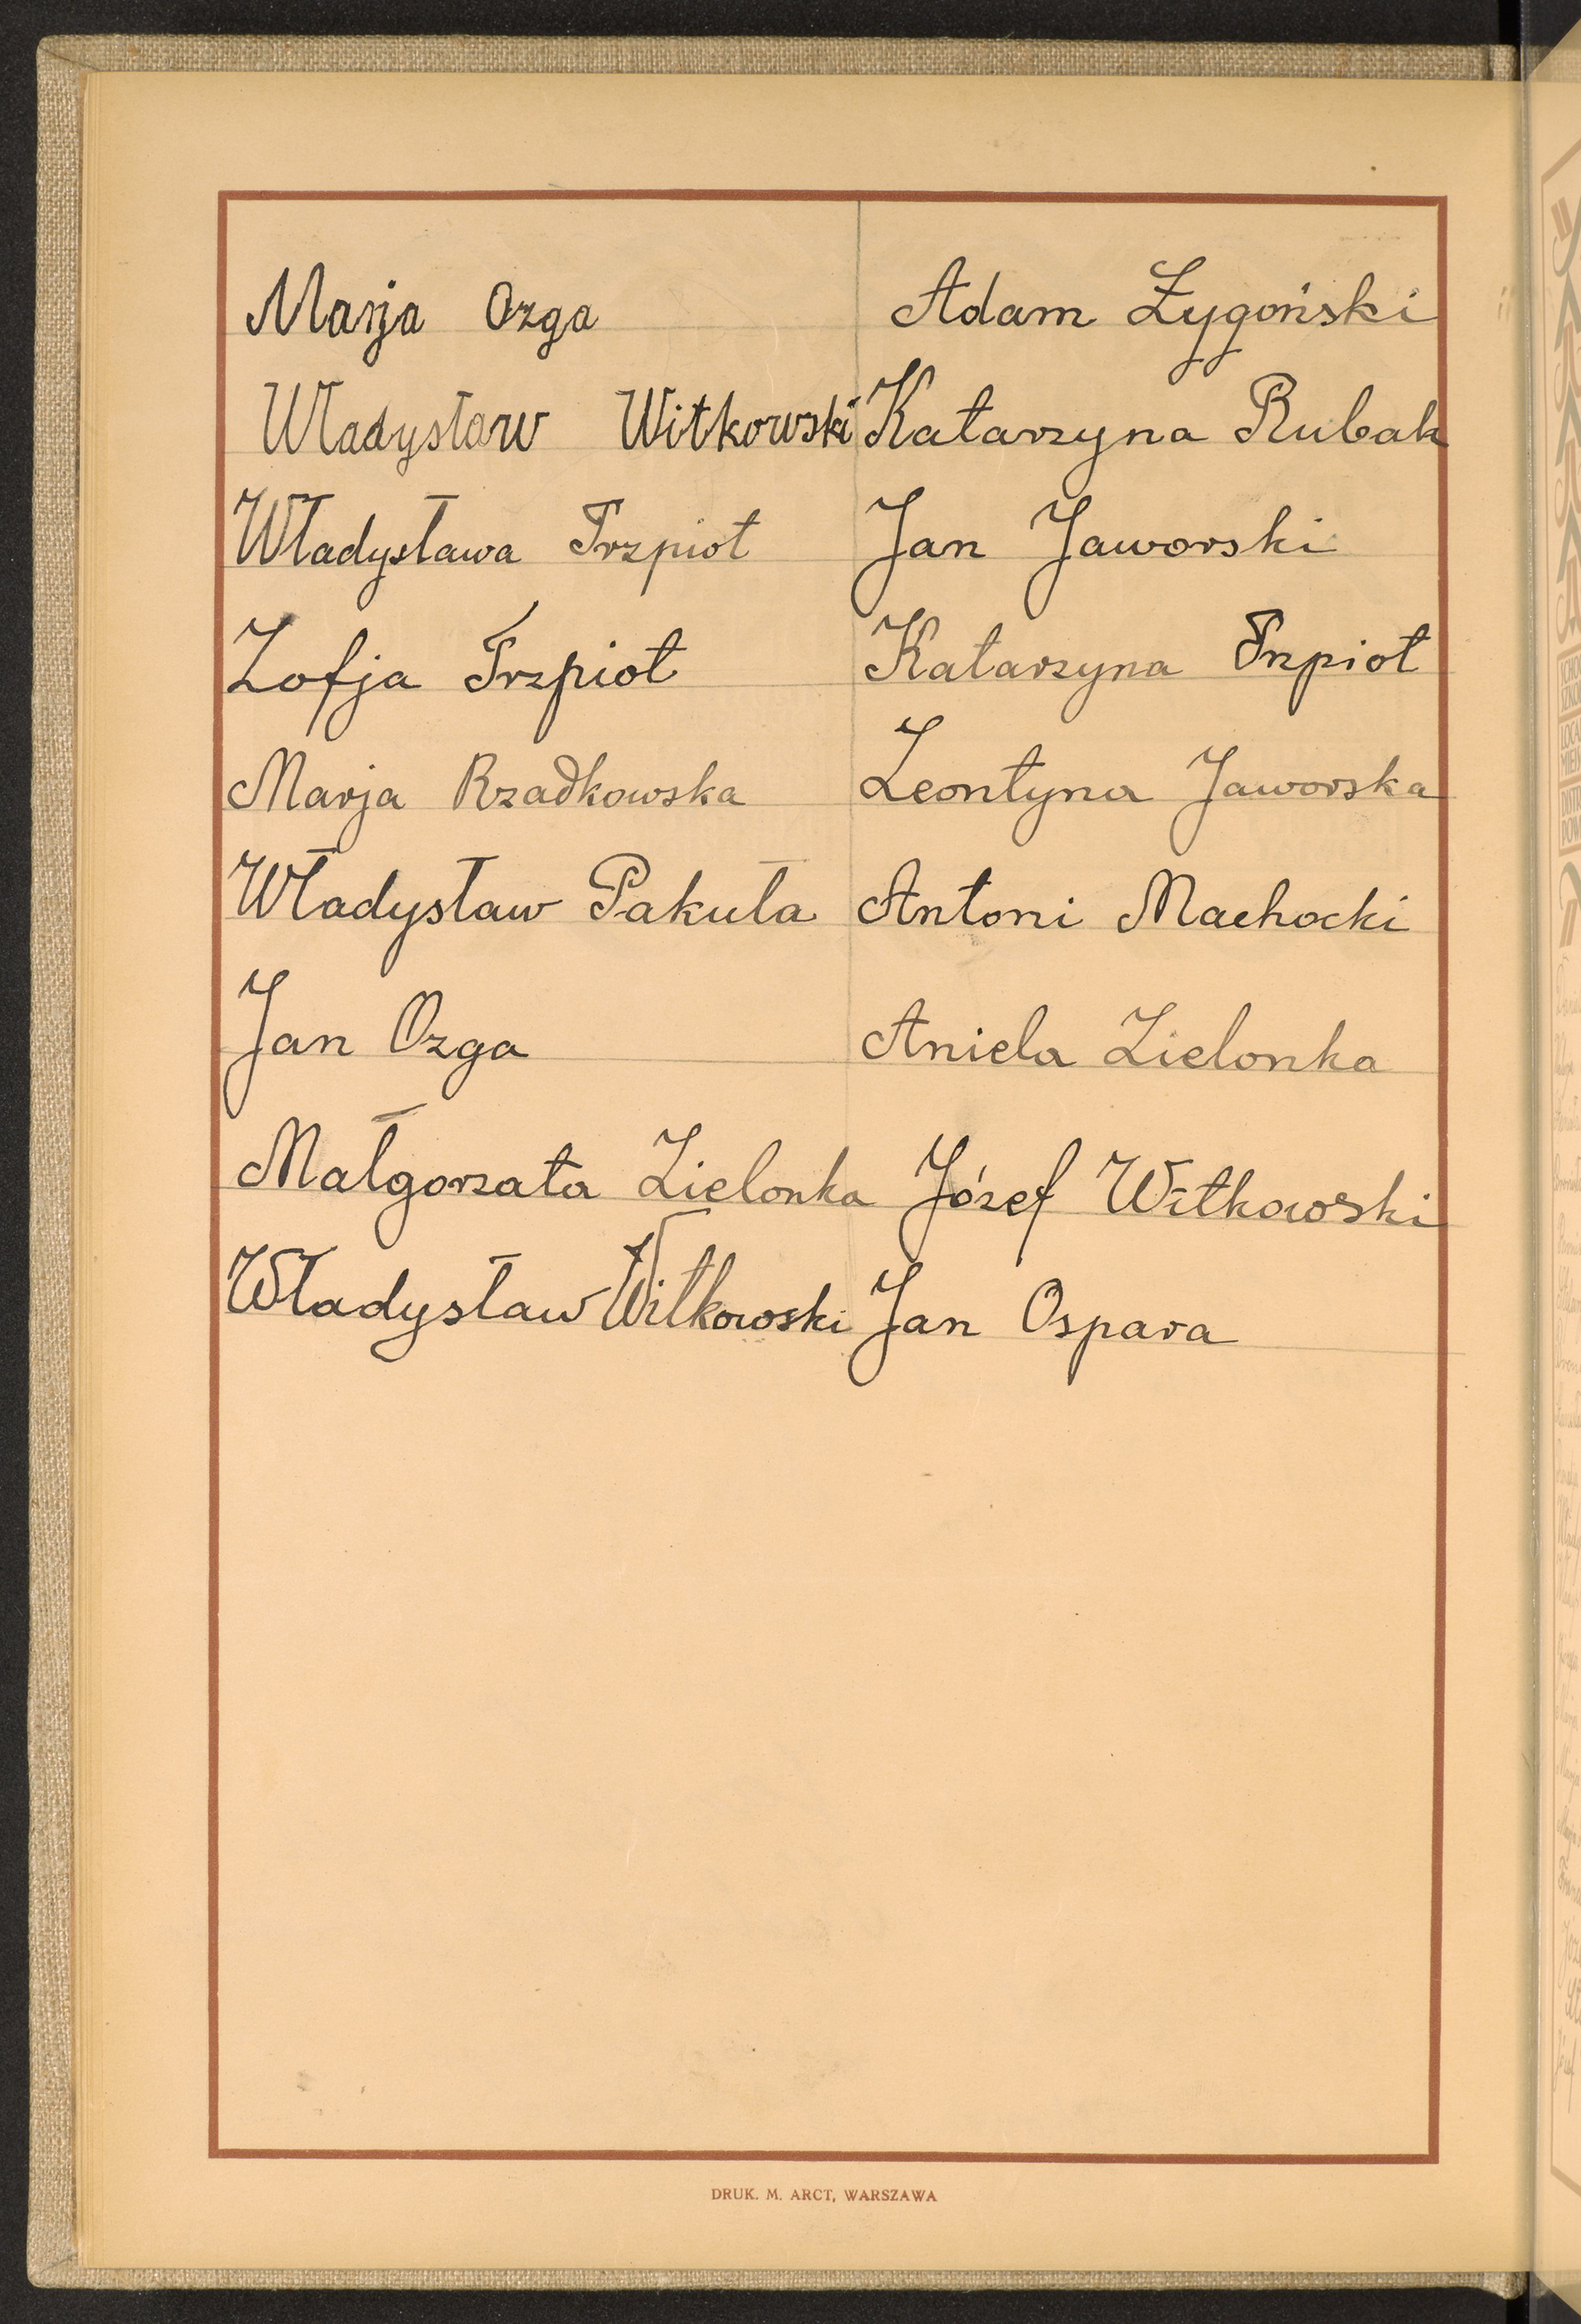 Marja Ozga
Władysław Witkowski
Władysława Trzpiot
Zofja Trzpiot
Marja Rzadkowska
Władysław Pakuła
Jan Ozga
Małgorzata Zielonka
Władysław Witkowski
Adam Zygoński
Katarzyna Rubak
Jan Jaworski
Katarzyna Trzpiot
Leontyna Jaworska
Antoni Machocki
Aniela Zielonka
Józef Witkowski
Jan Ospara
DRUK. M. ARCT, WARSZAWA